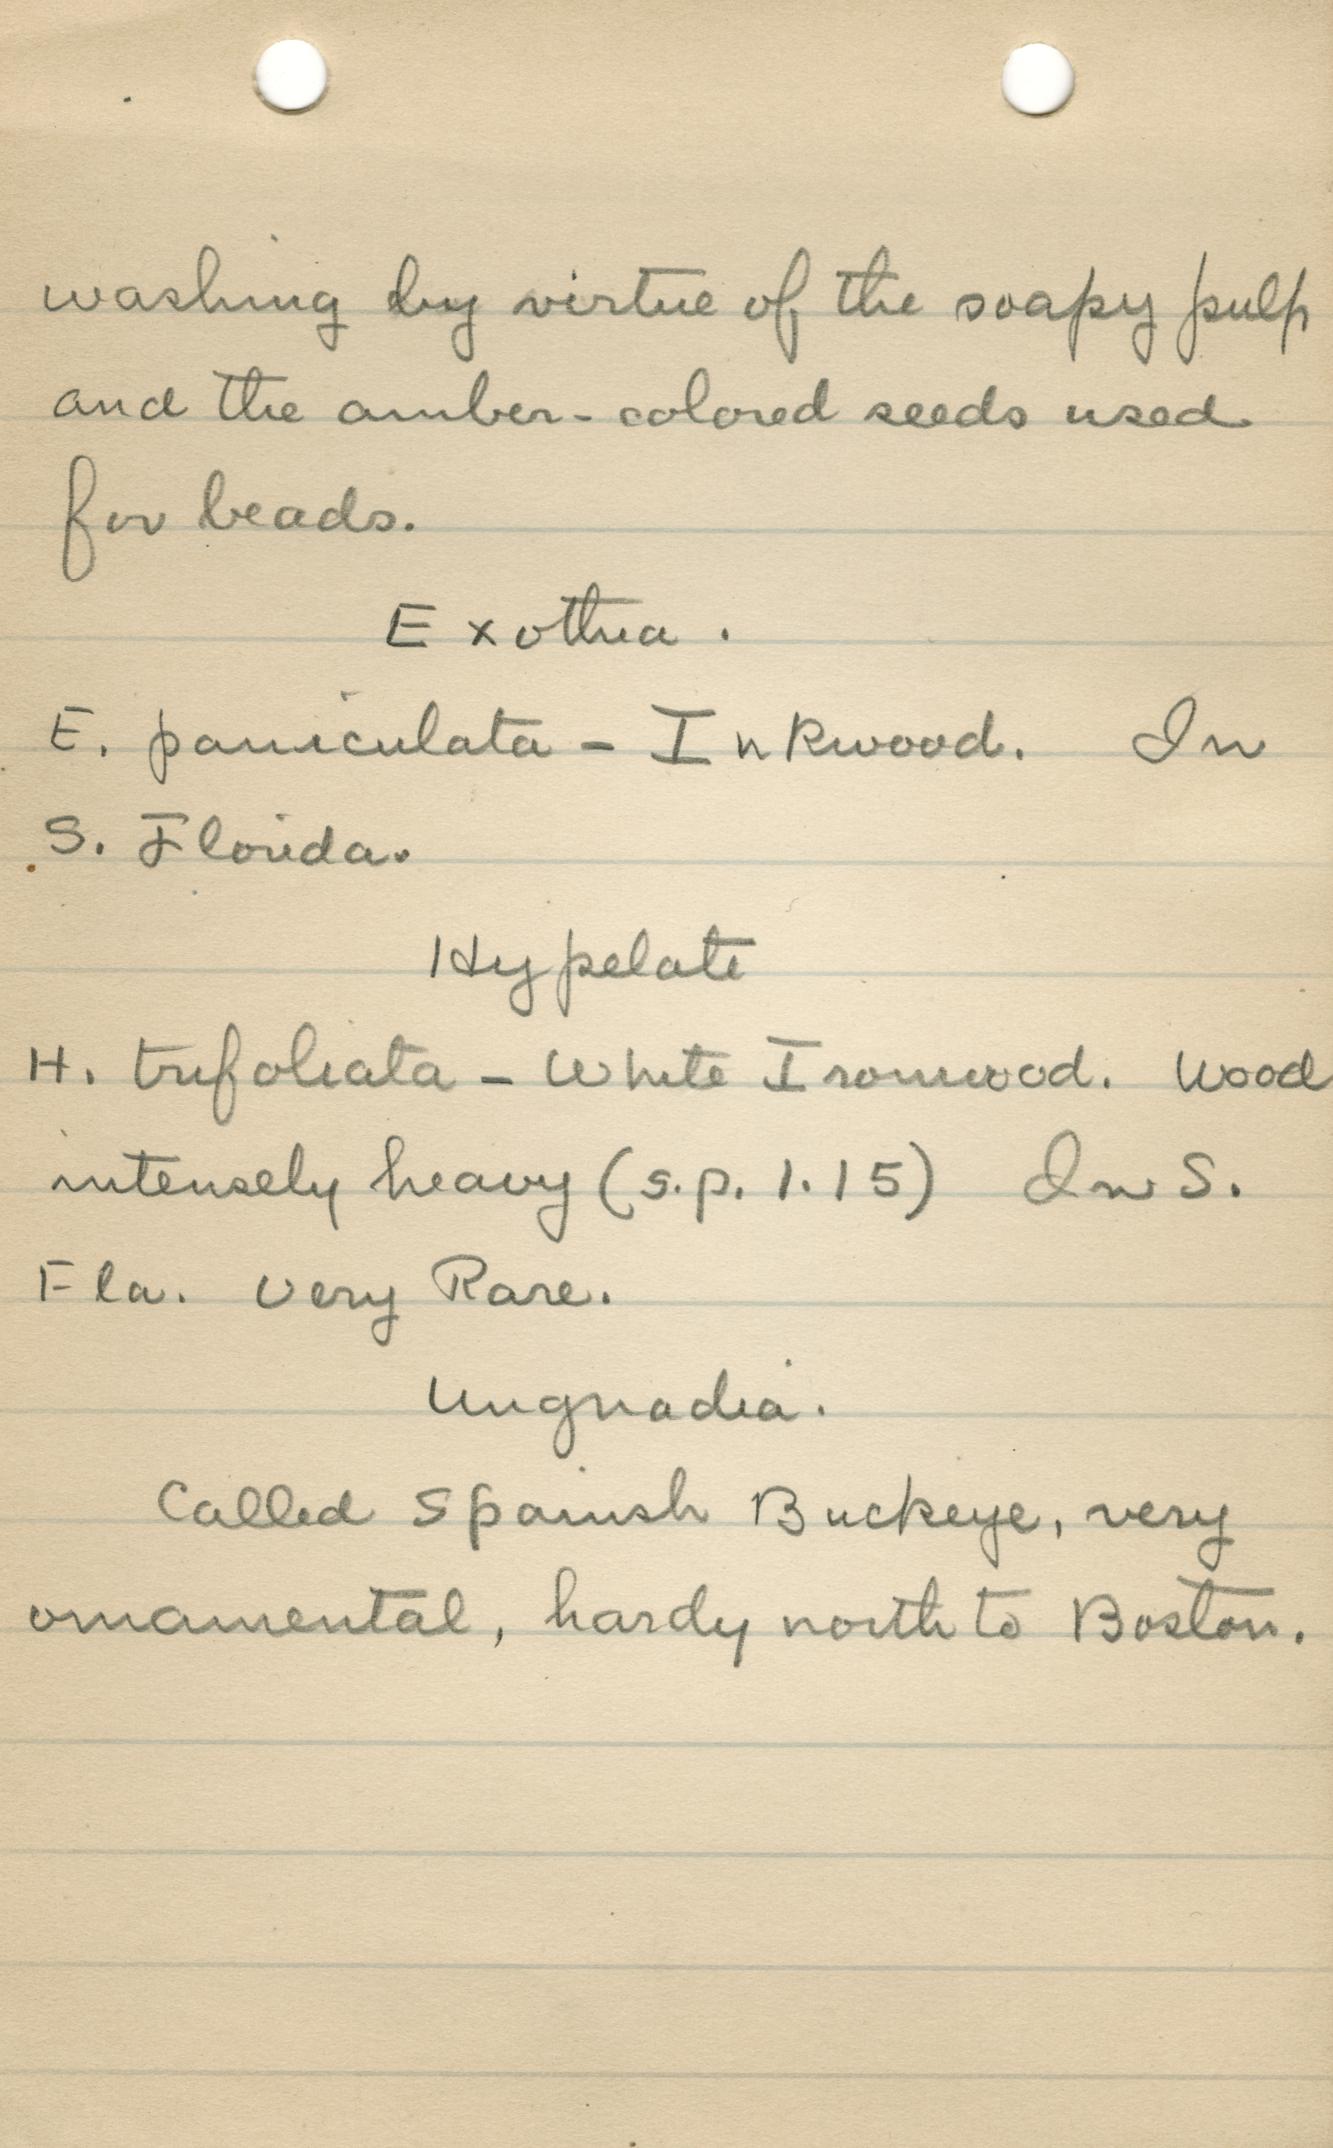 washing by virtue of the soapy pulp
and the amber-colored seeds used
for beads.
Exothea.
E. paniculata - Inkwood. In
S. Florida.
Hypelate
H. trifoliata - White Ironwood. Wood
intensely heavy (s.p. 1.15) In S.
Fla. Very Rare.
Ungnadia.
Called Spanish Buckeye, very
ornamental, hardy north to Boston.